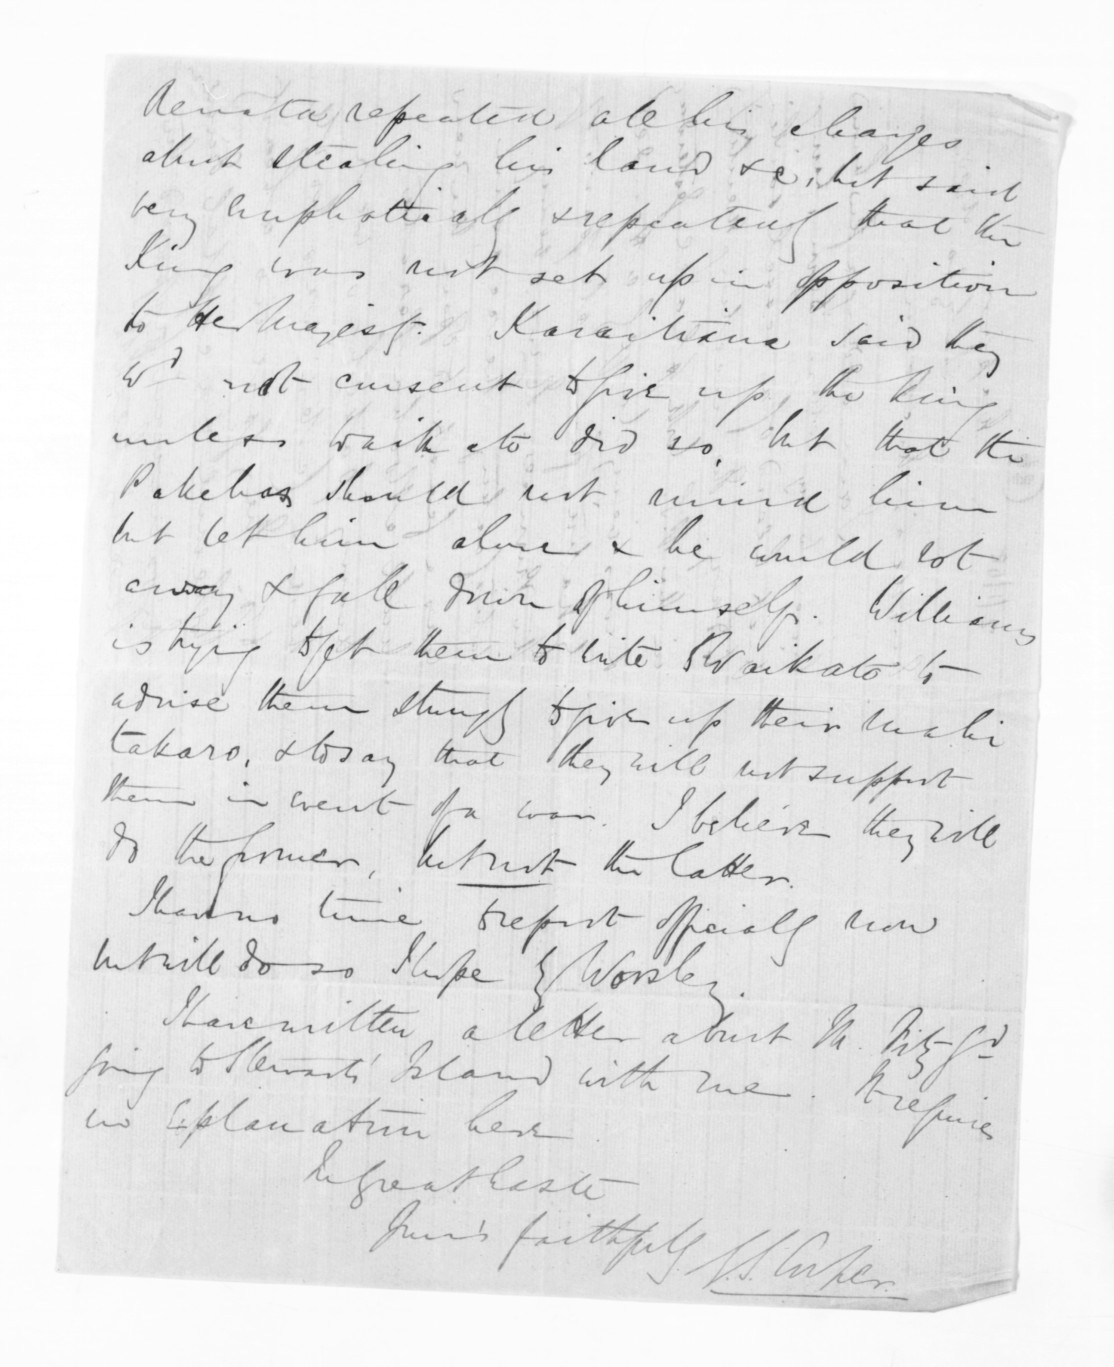 Renata repeated all his charges
about stealing his land &c, but said
very emphatically & repeatedly that the
King was not set up in opposition
to Her Majesty. Karaitiana said they
wd not consent to give up the King
unless Waikato did so, but that the
Pakehas should not mind him
but let him alone & he would rot
away & fall down of himself. Williams
is trying to get them to write to Waikato to
advise them strongly to give up their mahi
takaro, & to say that they will not support
them in event of a war. I believe they will
do the former, but not the latter.
I have no time to report officially now
but will do so I hope by Worsley.
I have written a letter about M. Fitz-Gd
going to Stewart's Island with me. It requires
no explanation here.
In great haste
Yours faithfully
G.S. Cooper.